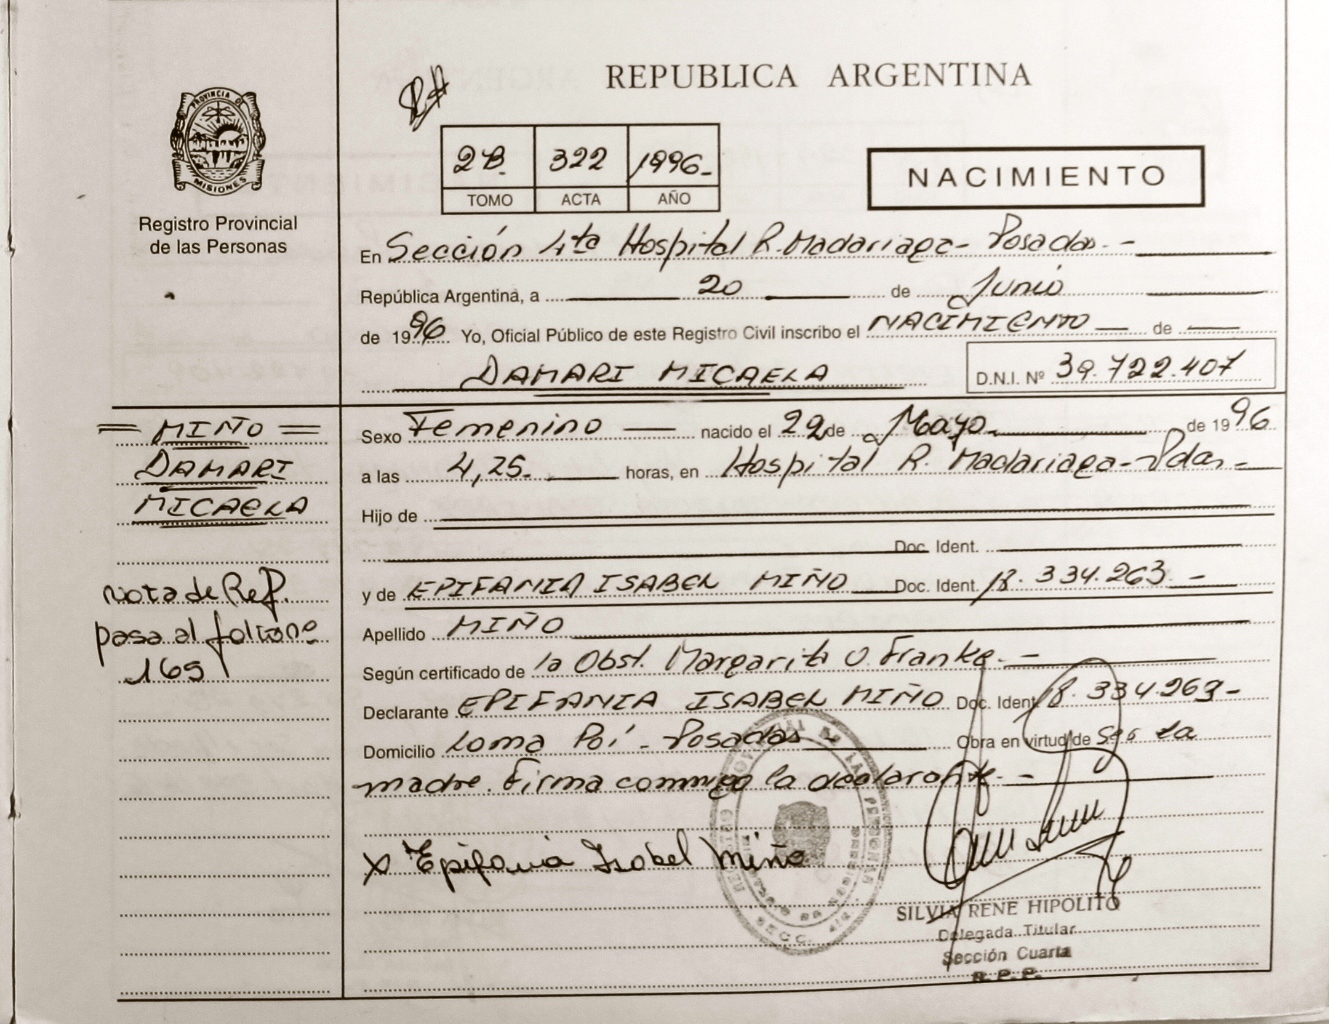 REPUBLICA ARGENTINA
PROVINCIA D
MISIONES
Registro Provincial
de las Personas
2B. 322 1996.-
TOMO ACTA AÑO
NACIMIENTO
En Sección 4ta Hospital R. Madariaga - Posadas. -
República Argentina, a 20 de Junio
de 1996 Yo, Oficial Público de este Registro Civil inscribo el NACIMIENTO — de —
DAMARI MICAELA
D.N.I. Nº 39.722.407
= MIÑO =
DAMARI
MICAELA
Nota de Ref.
pasa al folio
169
Sexo Femenino — nacido el 22 de Mayo. de 1996
a las 4,25. horas, en Hospital R. Madariaga - Pdas -
Hijo de
Doc. Ident.
y de EPIFANIA ISABEL MIÑO Doc. Ident. 18.334.263 -
Apellido MIÑO
Según certificado de la Obst. Margarita O. Franke. -
Declarante EPIFANIA ISABEL MIÑO Doc. Ident. 18.334.263 -
Domicilio Loma Poí - Posadas Obra en virtud de ser la
madre. Firma conmigo la declarante. -
X Epifania Isabel Miño
SILVIA RENE HIPOLITO
Delegada Titular
Sección Cuarta
R.P.P.